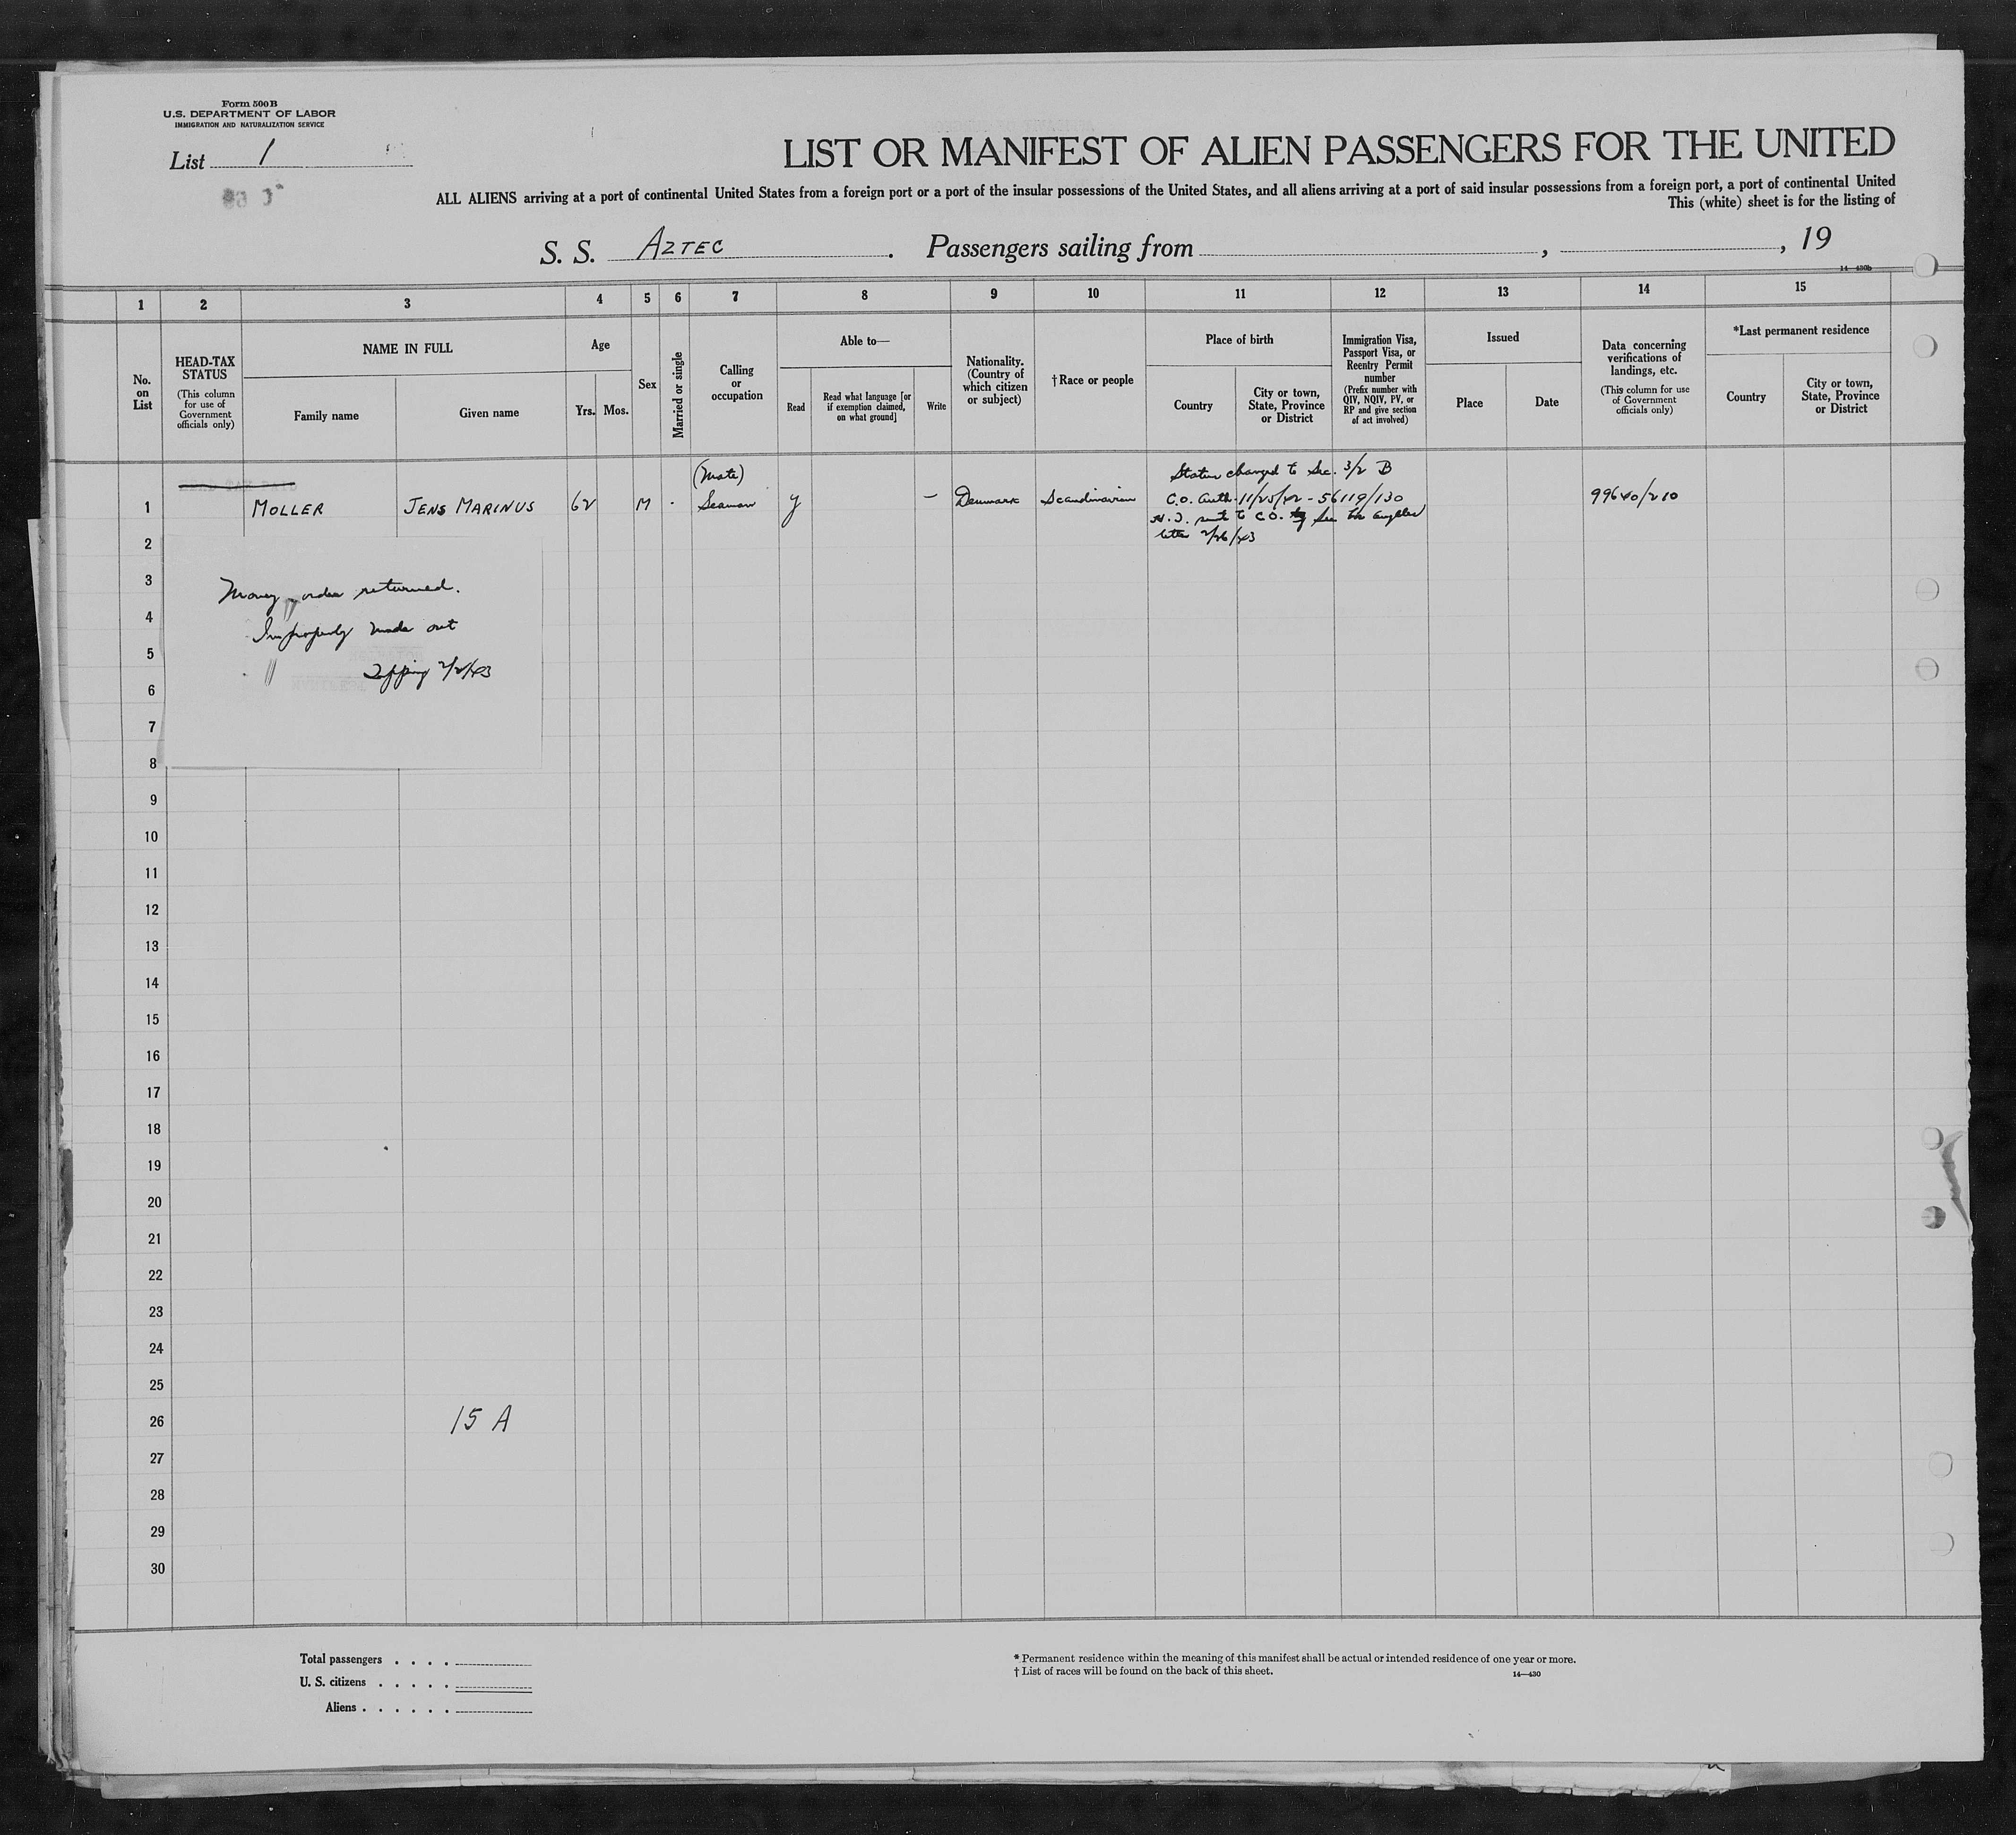 Form 500B
U.S. DEPARTMENT OF LABOR
IMMIGRATION AND NATURALIZATION SERVICE
List 1
LIST OR MANIFEST OF ALIEN PASSENGERS FOR THE UNITED
ALL ALIENS arriving at a port of continental United States from a foreign port or a port of the insular possessions of the United States, and all aliens arriving at a port of said insular possessions from a foreign port, a port of continental United
This (white) sheet is for the listing of
S. S. AZTEC . Passengers sailing from , , 19
14—430b
1 2 3 4 5 6 7 8 9 10 11 12 13 14 15
No. on List
HEAD-TAX STATUS
(This column for use of Government officials only)
NAME IN FULL
Family name
Given name
Age
Yrs. Mos.
Sex
Married or single
Calling or occupation
Able to—
Read
Read what language [or if exemption claimed, on what ground]
Write
Nationality. (Country of which citizen or subject)
†Race or people
Place of birth
Country
City or town, State, Province or District
Immigration Visa, Passport Visa, or Reentry Permit number
(Prefix number with QIV, NQIV, PV, or RP and give section of act involved)
Issued
Place
Date
Data concerning verifications of landings, etc.
(This column for use of Government officials only)
*Last permanent residence
Country
City or town, State, Province or District
(Mate) Status changed to Sec. 3/2 B
1 MOLLER JENS MARINUS 62 M - Seaman y — Denmark Scandinavian C.O. Auth. 11/25/42 - 56119/130 99640/210
sent to C.O. See Los Angeles
letter 2/26/43
2
3 Money order returned.
4
Improperly made out
5
2/2/43
6
7
8
9
10
11
12
13
14
15
16
17
18
19
20
21
22
23
24
25
26 15 A
27
28
29
30
Total passengers . . . .
U. S. citizens . . . . .
Aliens . . . . . .
* Permanent residence within the meaning of this manifest shall be actual or intended residence of one year or more.
† List of races will be found on the back of this sheet. 14—430